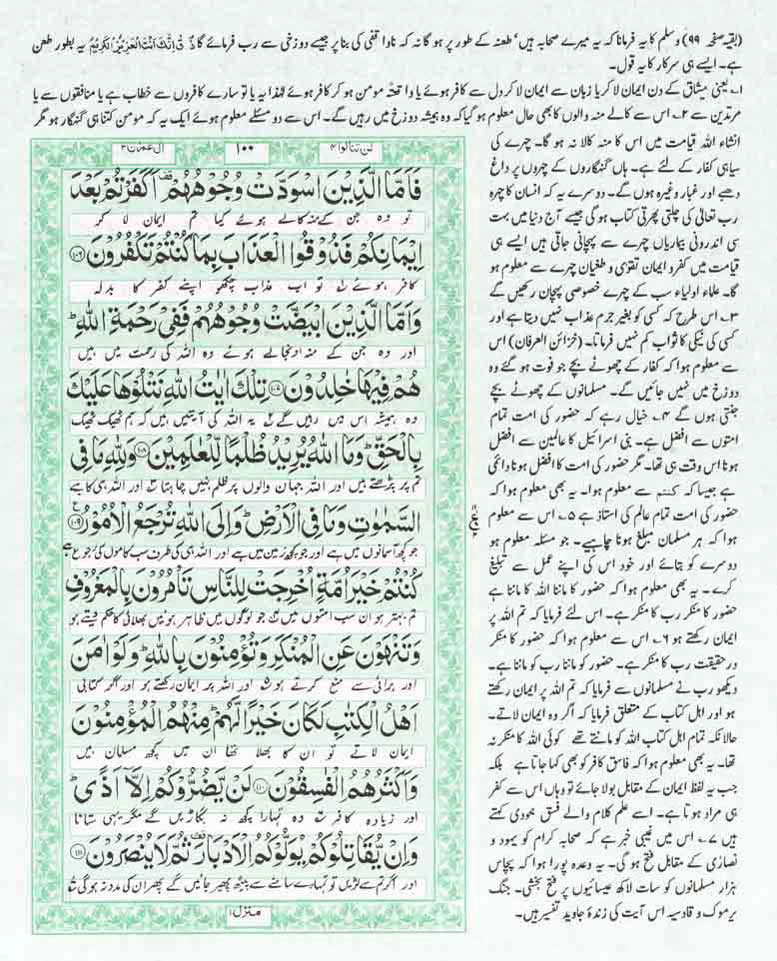 (بقیہ صفحہ ۹۹) وسلم کا یہ فرمانا کہ یہ میرے صحابہ ہیں' طعنہ کے طور پر ہو گا نہ کہ ناواقفی کی بنا پر جیسے دوزخی سے رب فرمائے گا ذُقْ اِنَّكَ اَنْتَ الْعَزِيْزُ الْكَرِيْمُ یہ بطور طعن
ہے۔ ایسے ہی سرکار کا یہ قول۔
۱۔ یعنی میثاق کے دن ایمان لا کر یا زبان سے ایمان لا کر دل سے کافر ہوئے یا واقعۃً مومن ہو کر کافر ہوئے لہٰذا یہ یا تو سارے کافروں سے خطاب ہے یا منافقوں سے یا
مرتدین سے ۲۔ اس سے کالے منہ والوں کا بھی حال معلوم ہو گیا کہ وہ ہمیشہ دوزخ میں رہیں گے۔ اس سے دو مسئلے معلوم ہوئے ایک یہ کہ مومن کتنا ہی گنہگار ہو مگر
انشاء اللہ قیامت میں اس کا منہ کالا نہ ہو گا۔ چہرے کی
سیاہی کفار کے لئے ہے۔ ہاں گنہگاروں کے چہروں پر داغ
دھبے اور غبار وغیرہ ہوں گے۔ دوسرے یہ کہ انسان کا چہرہ
رب تعالیٰ کی چلتی پھرتی کتاب ہو گی جیسے آج دنیا میں بہت
سی اندرونی بیماریاں چہرے سے پہچانی جاتی ہیں ایسے ہی
قیامت میں کفر و ایمان تقویٰ و طغیان چہرے سے معلوم ہو
گا۔ علماء اولیاء سب کے چہرے خصوصی پہچان رکھیں گے
۳۔ اس طرح کہ کسی کو بغیر جرم عذاب نہیں دیتا ہے اور
کسی کی نیکی کا ثواب کم نہیں فرماتا۔ (خزائن العرفان) اس
سے معلوم ہوا کہ کفار کے چھوٹے بچے جو فوت ہو گئے وہ
دوزخ میں نہیں جائیں گے۔ مسلمانوں کے چھوٹے بچے
جنتی ہوں گے ۴۔ خیال رہے کہ حضور کی امت تمام
امتوں سے افضل ہے۔ بنی اسرائیل کا عالمین سے افضل
ہونا اس وقت ہی تھا۔ مگر حضور کی امت کا افضل ہونا دائمی
ہے جیسا کہ کنتم سے معلوم ہوا۔ یہ بھی معلوم ہوا کہ
حضور کی امت تمام عالم کی استاذ ہے ۵۔ اس سے معلوم
ہوا کہ ہر مسلمان مبلغ ہونا چاہیے۔ جو مسئلہ معلوم ہو
دوسرے کو بتائے اور خود اس کی اپنے عمل سے تبلیغ
کرے۔ یہ بھی معلوم ہوا کہ حضور کا ماننا اللہ کا ماننا ہے
حضور کا منکر رب کا منکر ہے۔ اس لئے فرمایا کہ تم اللہ پر
ایمان رکھتے ہو ۶۔ اس سے معلوم ہوا کہ حضور کا منکر
درحقیقت رب کا منکر ہے۔ حضور کو ماننا رب کو ماننا ہے۔
دیکھو رب نے مسلمانوں سے فرمایا کہ تم اللہ پر ایمان رکھتے
ہو اور اہل کتاب کے متعلق فرمایا کہ اگر وہ ایمان لاتے۔
حالانکہ تمام اہل کتاب اللہ کو مانتے تھے کوئی اللہ کا منکر نہ
تھا۔ یہ بھی معلوم ہوا کہ فاسق کافر کو بھی کہا جاتا ہے بلکہ
جب یہ لفظ ایمان کے مقابل بولا جائے تو وہاں اس سے کفر
ہی مراد ہوتا ہے۔ اسے علم کلام والے فسق جحودی کہتے
ہیں ۷۔ اس میں غیبی خبر ہے کہ صحابہ کرام کو یہود و
نصاریٰ کے مقابل فتح ہو گی۔ یہ وعدہ پورا ہوا کہ پچاس
ہزار مسلمانوں کو سات لاکھ عیسائیوں پر فتح بخشی۔ جنگ
یرموک و قادسیہ اس آیت کی زندۂ جاوید تفسیر ہیں۔
لن تنالوا ۴
۱۰۰
آل عمران ۳
فَاَمَّا الَّذِيْنَ اسْوَدَّتْ وُجُوْهُهُمْ اَكَفَرْتُمْ بَعْدَ
تو وہ جن کے منہ کالے ہوئے کیا تم ایمان لا کر
اِيْمَانِكُمْ فَذُوْقُوا الْعَذَابَ بِمَا كُنْتُمْ تَكْفُرُوْنَ ۱۰۶
کافر ہوئے تو اب عذاب چکھو اپنے کفر کا بدلہ
وَاَمَّا الَّذِيْنَ ابْيَضَّتْ وُجُوْهُهُمْ فَفِيْ رَحْمَةِ اللّٰهِ
اور وہ جن کے منہ اونجالے ہوئے وہ اللہ کی رحمت میں ہیں
هُمْ فِيْهَا خٰلِدُوْنَ ۱۰۷ تِلْكَ اٰيٰتُ اللّٰهِ نَتْلُوْهَا عَلَيْكَ
وہ ہمیشہ اس میں رہیں گے یہ اللہ کی آیتیں ہیں کہ ہم ٹھیک ٹھیک
بِالْحَقِّ وَمَا اللّٰهُ يُرِيْدُ ظُلْمًا لِّلْعٰلَمِيْنَ ۱۰۸ وَلِلّٰهِ مَا فِي
تم پر پڑھتے ہیں اور اللہ جہان والوں پر ظلم نہیں چاہتا اور اللہ ہی کا ہے
السَّمٰوٰتِ وَمَا فِي الْاَرْضِ وَاِلَى اللّٰهِ تُرْجَعُ الْاُمُوْرُ ۱۰۹
جو کچھ آسمانوں میں ہے اور جو کچھ زمین میں ہے اور اللہ ہی کی طرف سب کاموں کی رجوع ہے
كُنْتُمْ خَيْرَ اُمَّةٍ اُخْرِجَتْ لِلنَّاسِ تَاْمُرُوْنَ بِالْمَعْرُوْفِ
تم بہتر ہو ان سب امتوں میں جو لوگوں میں ظاہر ہوئیں بھلائی کا حکم دیتے ہو
وَتَنْهَوْنَ عَنِ الْمُنْكَرِ وَتُؤْمِنُوْنَ بِاللّٰهِ وَلَوْ اٰمَنَ
اور برائی سے منع کرتے ہو اور اللہ پر ایمان رکھتے ہو اور اگر کتابی
اَهْلُ الْكِتٰبِ لَكَانَ خَيْرًا لَّهُمْ مِنْهُمُ الْمُؤْمِنُوْنَ
ایمان لاتے تو ان کا بھلا تھا ان میں کچھ مسلمان ہیں
وَاَكْثَرُهُمُ الْفٰسِقُوْنَ ۱۱۰ لَنْ يَّضُرُّوْكُمْ اِلَّا اَذًى
اور زیادہ کافر وہ تمہارا کچھ نہ بگاڑیں گے مگر یہی ستانا
وَاِنْ يُّقَاتِلُوْكُمْ يُوَلُّوْكُمُ الْاَدْبَارَ ثُمَّ لَا يُنْصَرُوْنَ ۱۱۱
اور اگر تم سے لڑیں تو تمہارے سامنے سے پیٹھ پھیر جائیں گے پھر ان کی مدد نہ ہو گی
منزل ۱